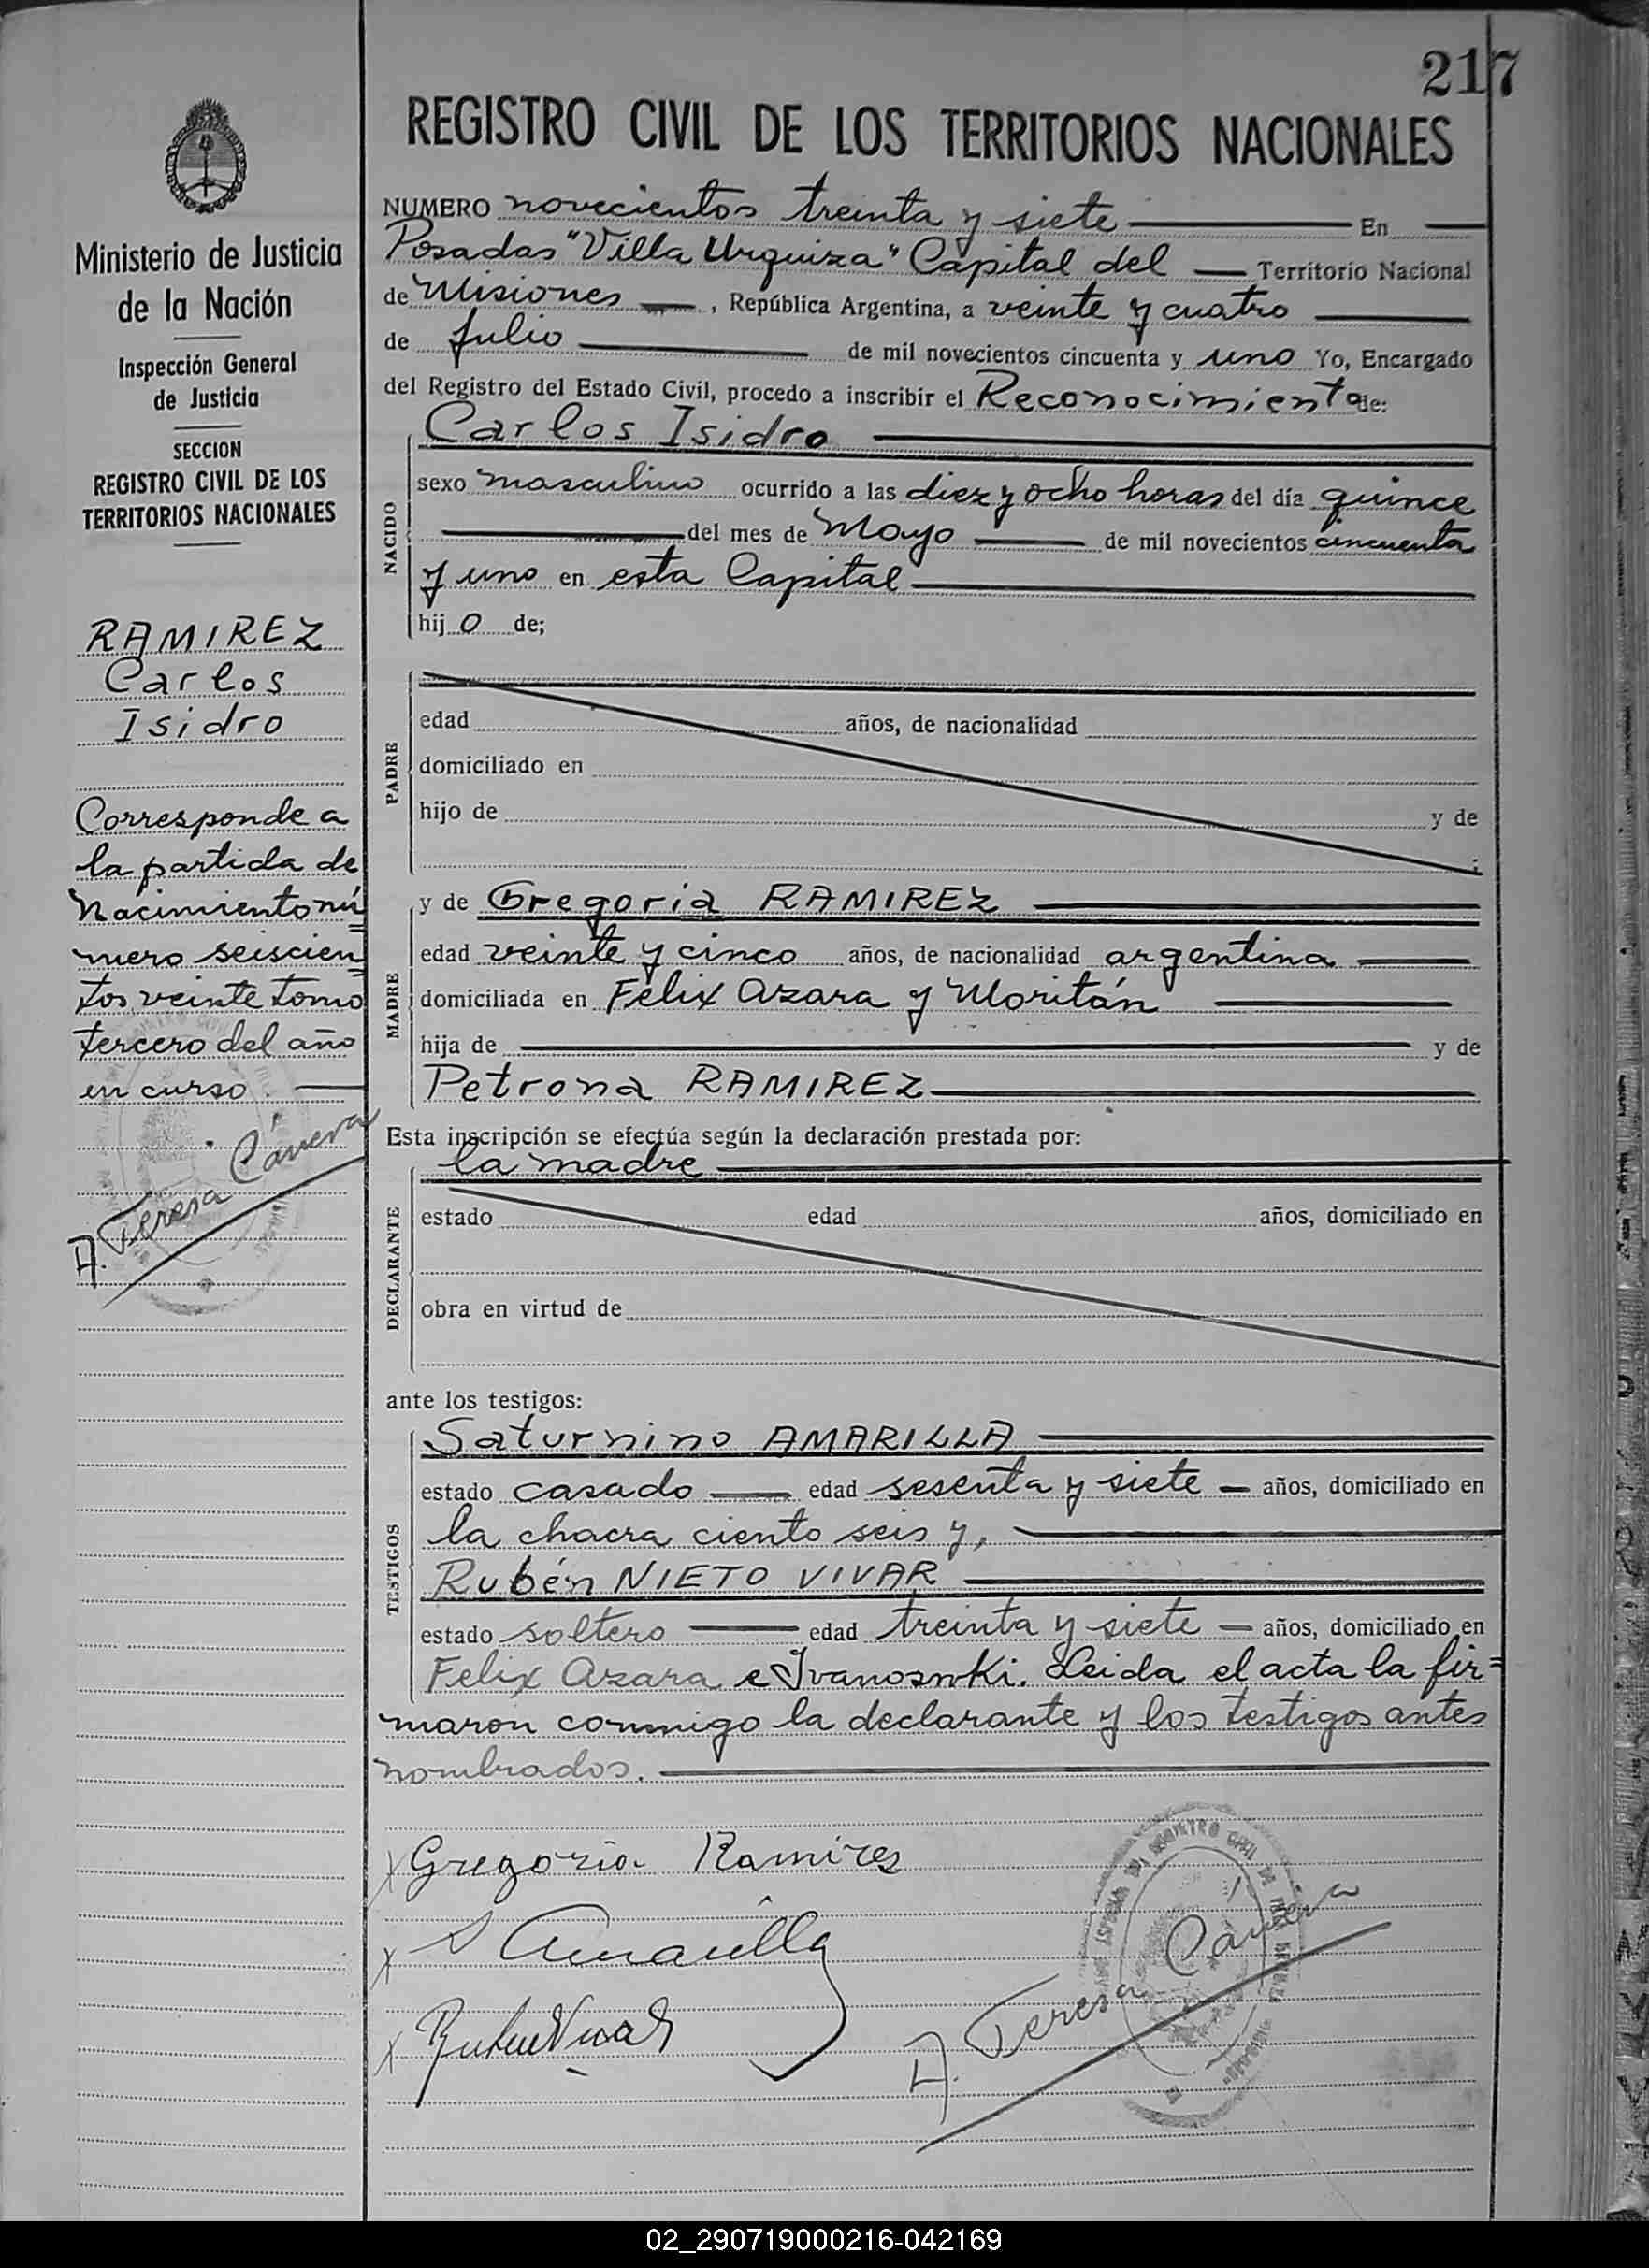 217
REGISTRO CIVIL DE LOS TERRITORIOS NACIONALES
Ministerio de Justicia
de la Nación
Inspección General
de Justicia
SECCION
REGISTRO CIVIL DE LOS
TERRITORIOS NACIONALES
RAMIREZ
Carlos
Isidro
Corresponde a
la partida de
Nacimiento nú
mero seiscien
tos veinte tomo
tercero del año
en curso.
A. Teresa Cánera
NUMERO novecientos treinta y siete En
Posadas "Villa Urquiza" Capital del Territorio Nacional
de Misiones, República Argentina, a veinte y cuatro
de Julio de mil novecientos cincuenta y uno Yo, Encargado
del Registro del Estado Civil, procedo a inscribir el Reconocimiento de:
NACIDO
Carlos Isidro
sexo masculino ocurrido a las diez y ocho horas del día quince
del mes de Mayo de mil novecientos cincuenta
y uno en esta Capital
hijo de;
PADRE
edad años, de nacionalidad
domiciliado en
hijo de y de
;
MADRE
y de Gregoria RAMIREZ
edad veinte y cinco años, de nacionalidad argentina
domiciliada en Félix Azara y Moritán
hija de y de
Petrona RAMIREZ
Esta inscripción se efectúa según la declaración prestada por:
DECLARANTE
la madre
estado edad años, domiciliado en
obra en virtud de
ante los testigos:
TESTIGOS
Saturnino AMARILLA
estado casado edad sesenta y siete años, domiciliado en
la chacra ciento seis y,
Rubén NIETO VIVAR
estado soltero edad treinta y siete años, domiciliado en
Felix Azara e Ivanoswki. Leida el acta la fir=
maron conmigo la declarante y los testigos antes
nombrados.
Gregoria Ramires
S Amarilla
A. Teresa Cánera
02_290719000216-042169